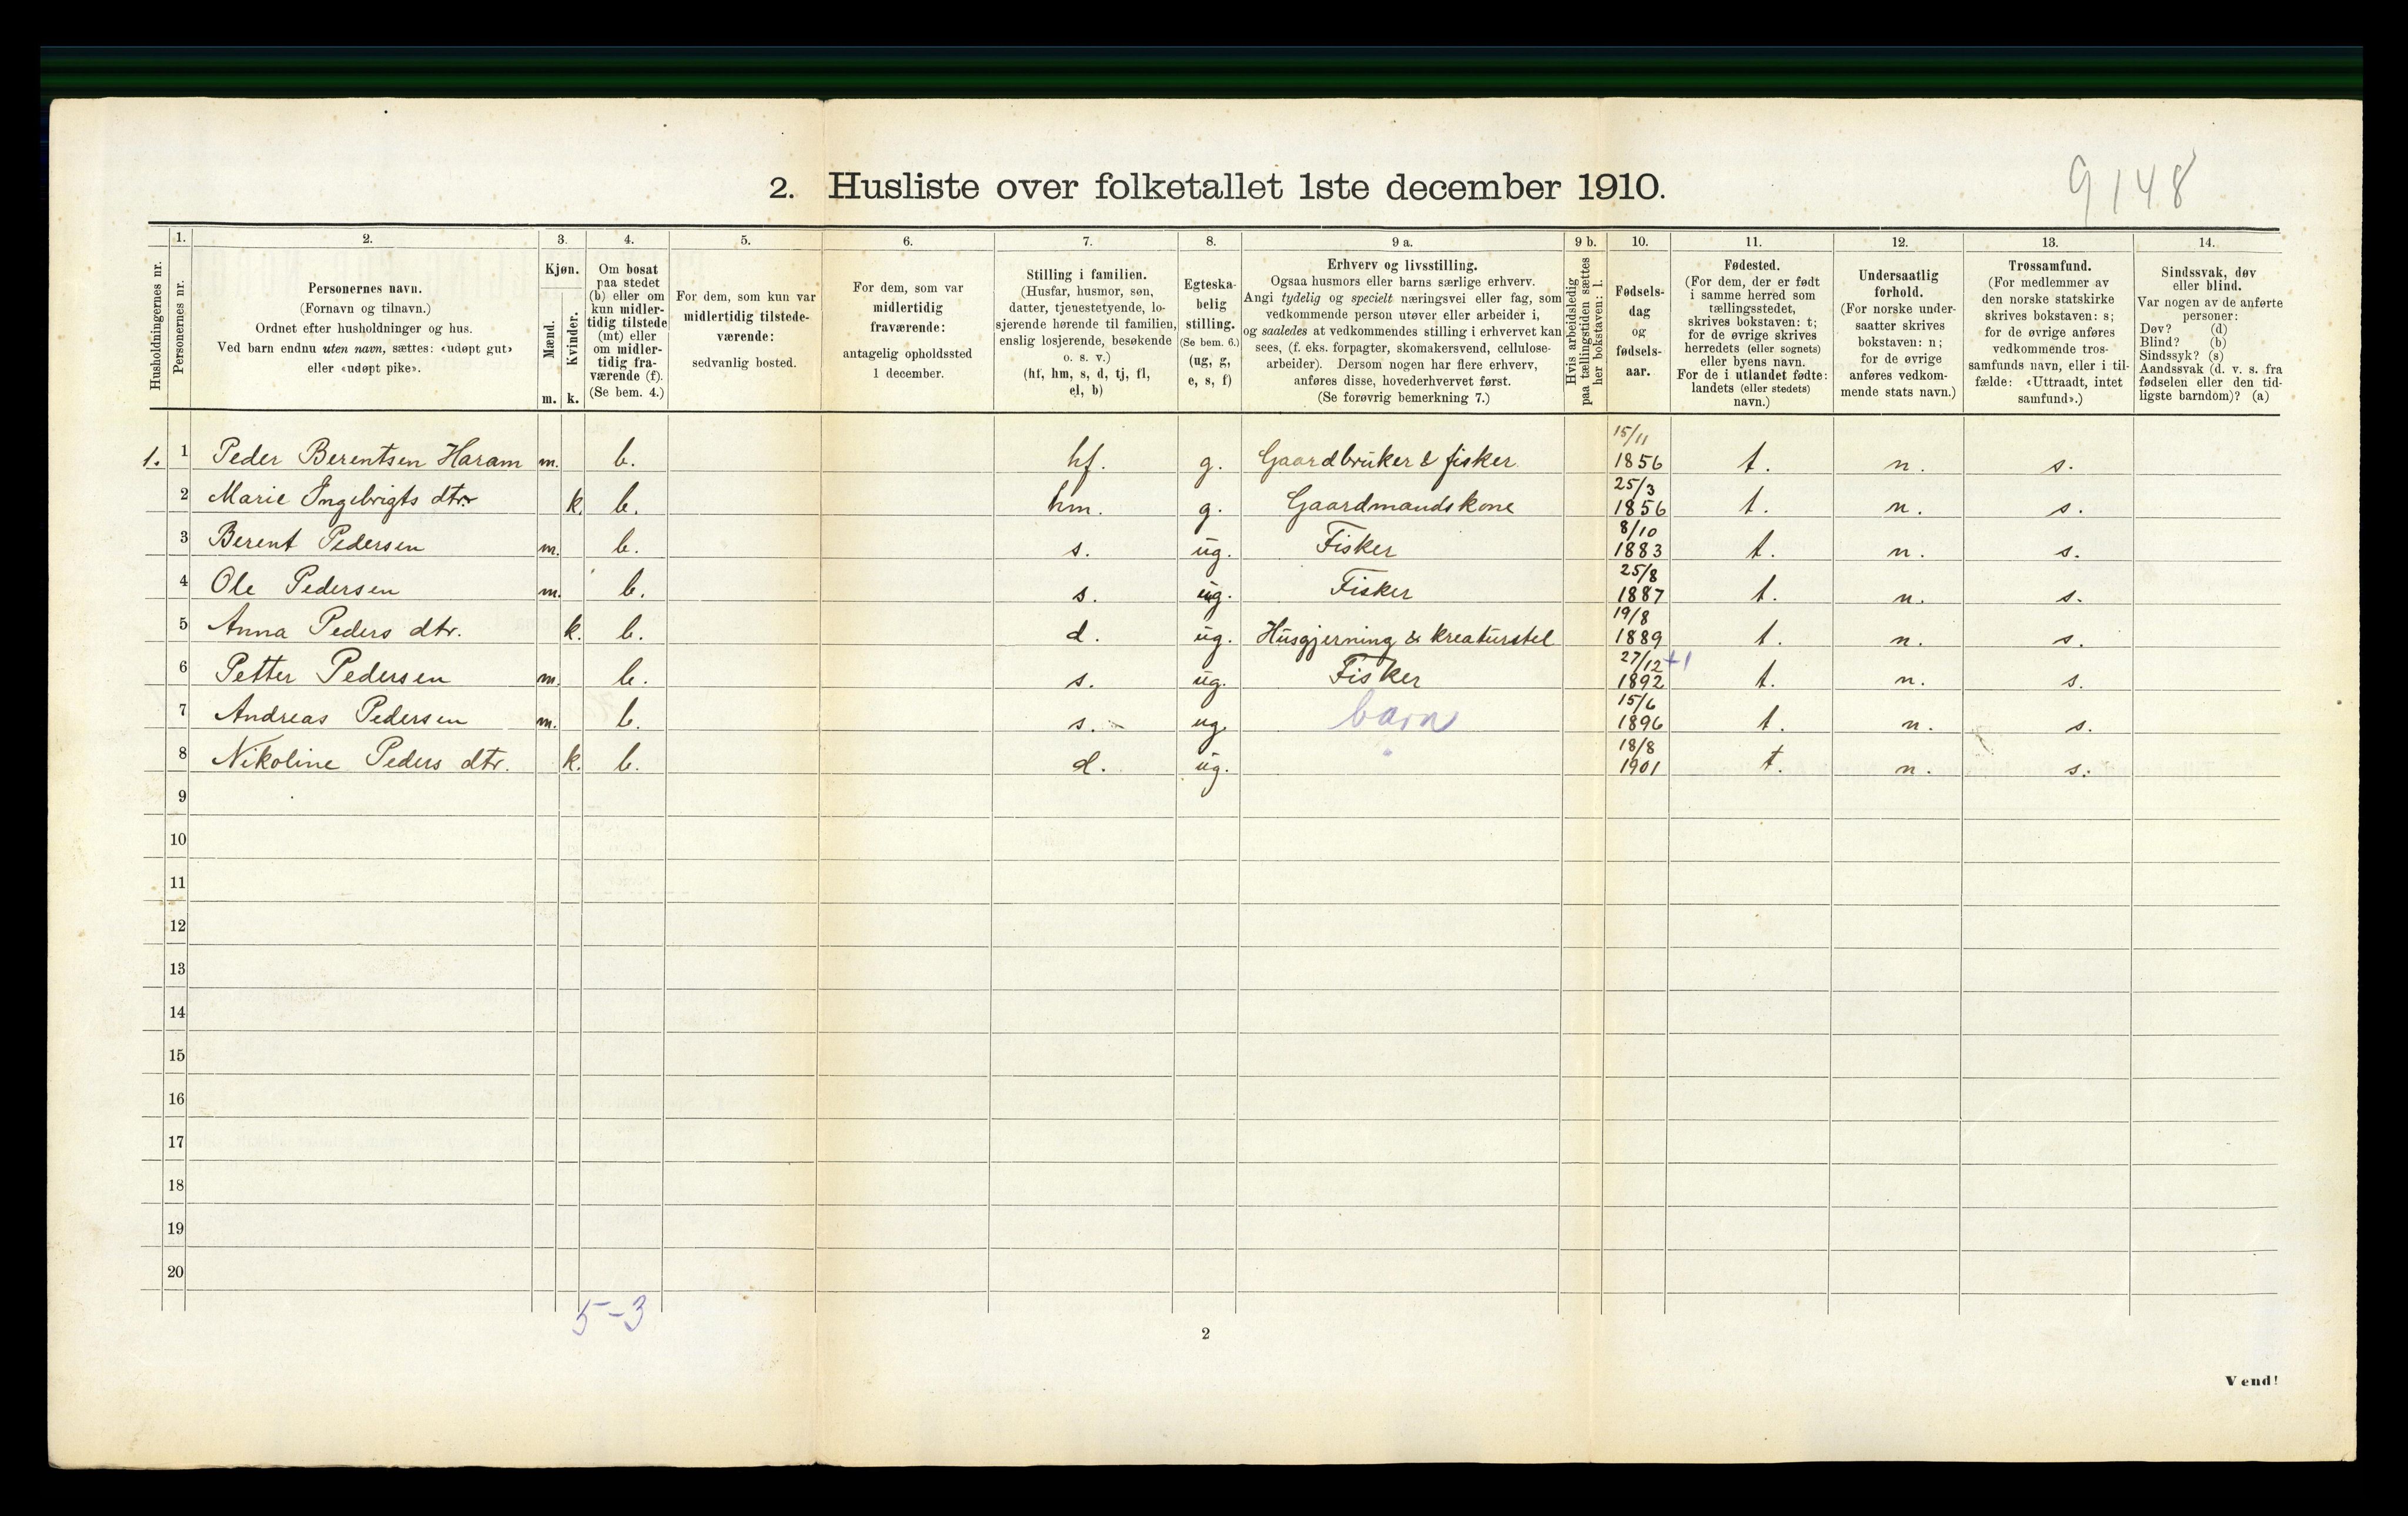 9148
2. Husliste over folketallet 1ste december 1910.
Husholdningernes nr.
1. Personernes nr.
2. Personernes navn.
(Fornavn og tilnavn.)
Ordnet efter husholdninger og hus.
Ved barn endnu uten navn, sættes: «udøpt gut»
eller «udøpt pike».
3. Kjøn.
Mænd. Kvinder.
m. k.
4. Om bosat
paa stedet
(b) eller om
kun midler-
tidig tilstede
(mt) eller
om midler-
tidig fra-
værende (f).
(Se bem. 4.)
5. For dem, som kun var
midlertidig tilstede-
værende:
sedvanlig bosted.
6. For dem, som var
midlertidig
fraværende:
antagelig opholdssted
1 december.
7. Stilling i familien.
(Husfar, husmor, søn,
datter, tjenestetyende, lo-
sjerende hørende til familien,
enslig losjerende, besøkende
o. s. v.)
(hf, hm, s, d, tj, fl,
el, b)
8. Egteska-
belig
stilling.
(Se bem. 6.)
(ug, g,
e, s, f)
9 a. Erhverv og livsstilling.
Ogsaa husmors eller barns særlige erhverv.
Angi tydelig og specielt næringsvei eller fag, som
vedkommende person utøver eller arbeider i,
og saaledes at vedkommendes stilling i erhvervet kan
sees, (f. eks. forpagter, skomakersvend, cellulose-
arbeider). Dersom nogen har flere erhverv,
anføres disse, hovederhvervet først.
(Se forøvrig bemerkning 7.)
9 b. Hvis arbeidsledig
paa tællingstiden sættes
her bokstaven: l.
10. Fødsels-
dag
og
fødsels-
aar.
11. Fødested.
(For dem, der er født
i samme herred som
tællingsstedet,
skrives bokstaven: t;
for de øvrige skrives
herredets (eller sognets)
eller byens navn.
For de i utlandet fødte:
landets (eller stedets)
navn.)
12. Undersaatlig
forhold.
(For norske under-
saatter skrives
bokstaven: n;
for de øvrige
anføres vedkom-
mende stats navn.)
13. Trossamfund.
(For medlemmer av
den norske statskirke
skrives bokstaven: s;
for de øvrige anføres
vedkommende tros-
samfunds navn, eller i til-
fælde: «Uttraadt, intet
samfund».)
14. Sindssvak, døv
eller blind.
Var nogen av de anførte
personer:
Døv? (d)
Blind? (b)
Sindssyk? (s)
Aandssvak (d. v. s. fra
fødselen eller den tid-
ligste barndom)? (a)
1. 1 Peder Berentsen Haram m. b. hf. g. Gaardbruker & fisker 15/11 1856 t. n. s.
2 Marie Ingebrigts dtr. k. b. hm. g. Gaardmandskone 25/3 1856 t. n. s.
3 Berent Pedersen m. b. s. ug. Fisker 8/10 1883 t. n. s.
4 Ole Pedersen m. b. s. ug. Fisker 25/8 1887 t. n. s.
5 Anna Peders dtr. k. b. d. ug. Husgjerning & kreaturstel 19/8 1889 t. n. s.
6 Petter Pedersen m. b. s. ug. Fisker 27/12 +1 1892 t. n. s.
7 Andreas Pedersen m. b. s. ug. barn 15/6 1896 t. n. s.
8 Nikoline Peders dtr. k. b. d. ug. 18/8 1901 t. n. s.
9
10
11
12
13
14
15
16
17
18
19
20
5-3
2
Vend!